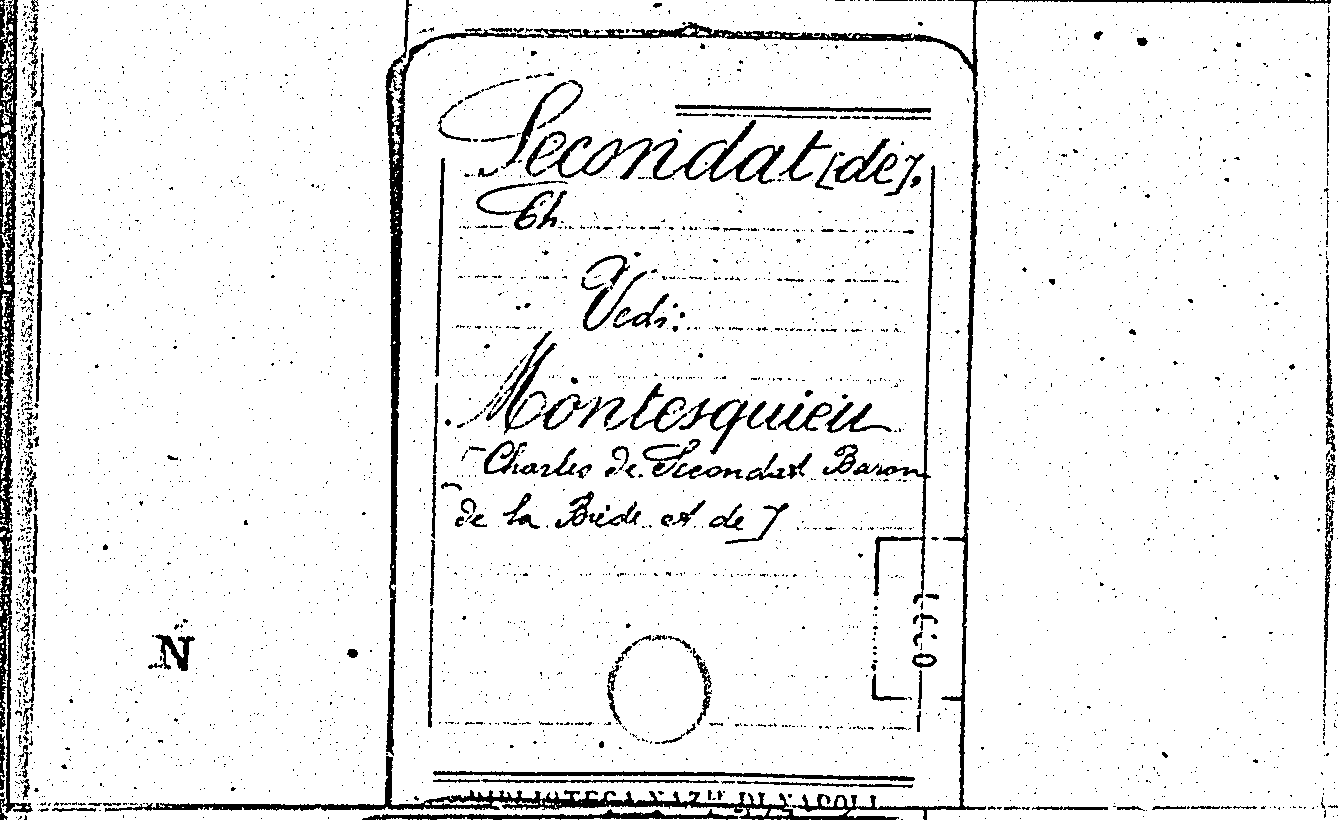 Secondat [de],
Ch
Vedi:
Montesquieu
[Charles de Secondat Baron
de la Brède et de]
N
BIBLIOTECA NAZ. DI NAPOLI